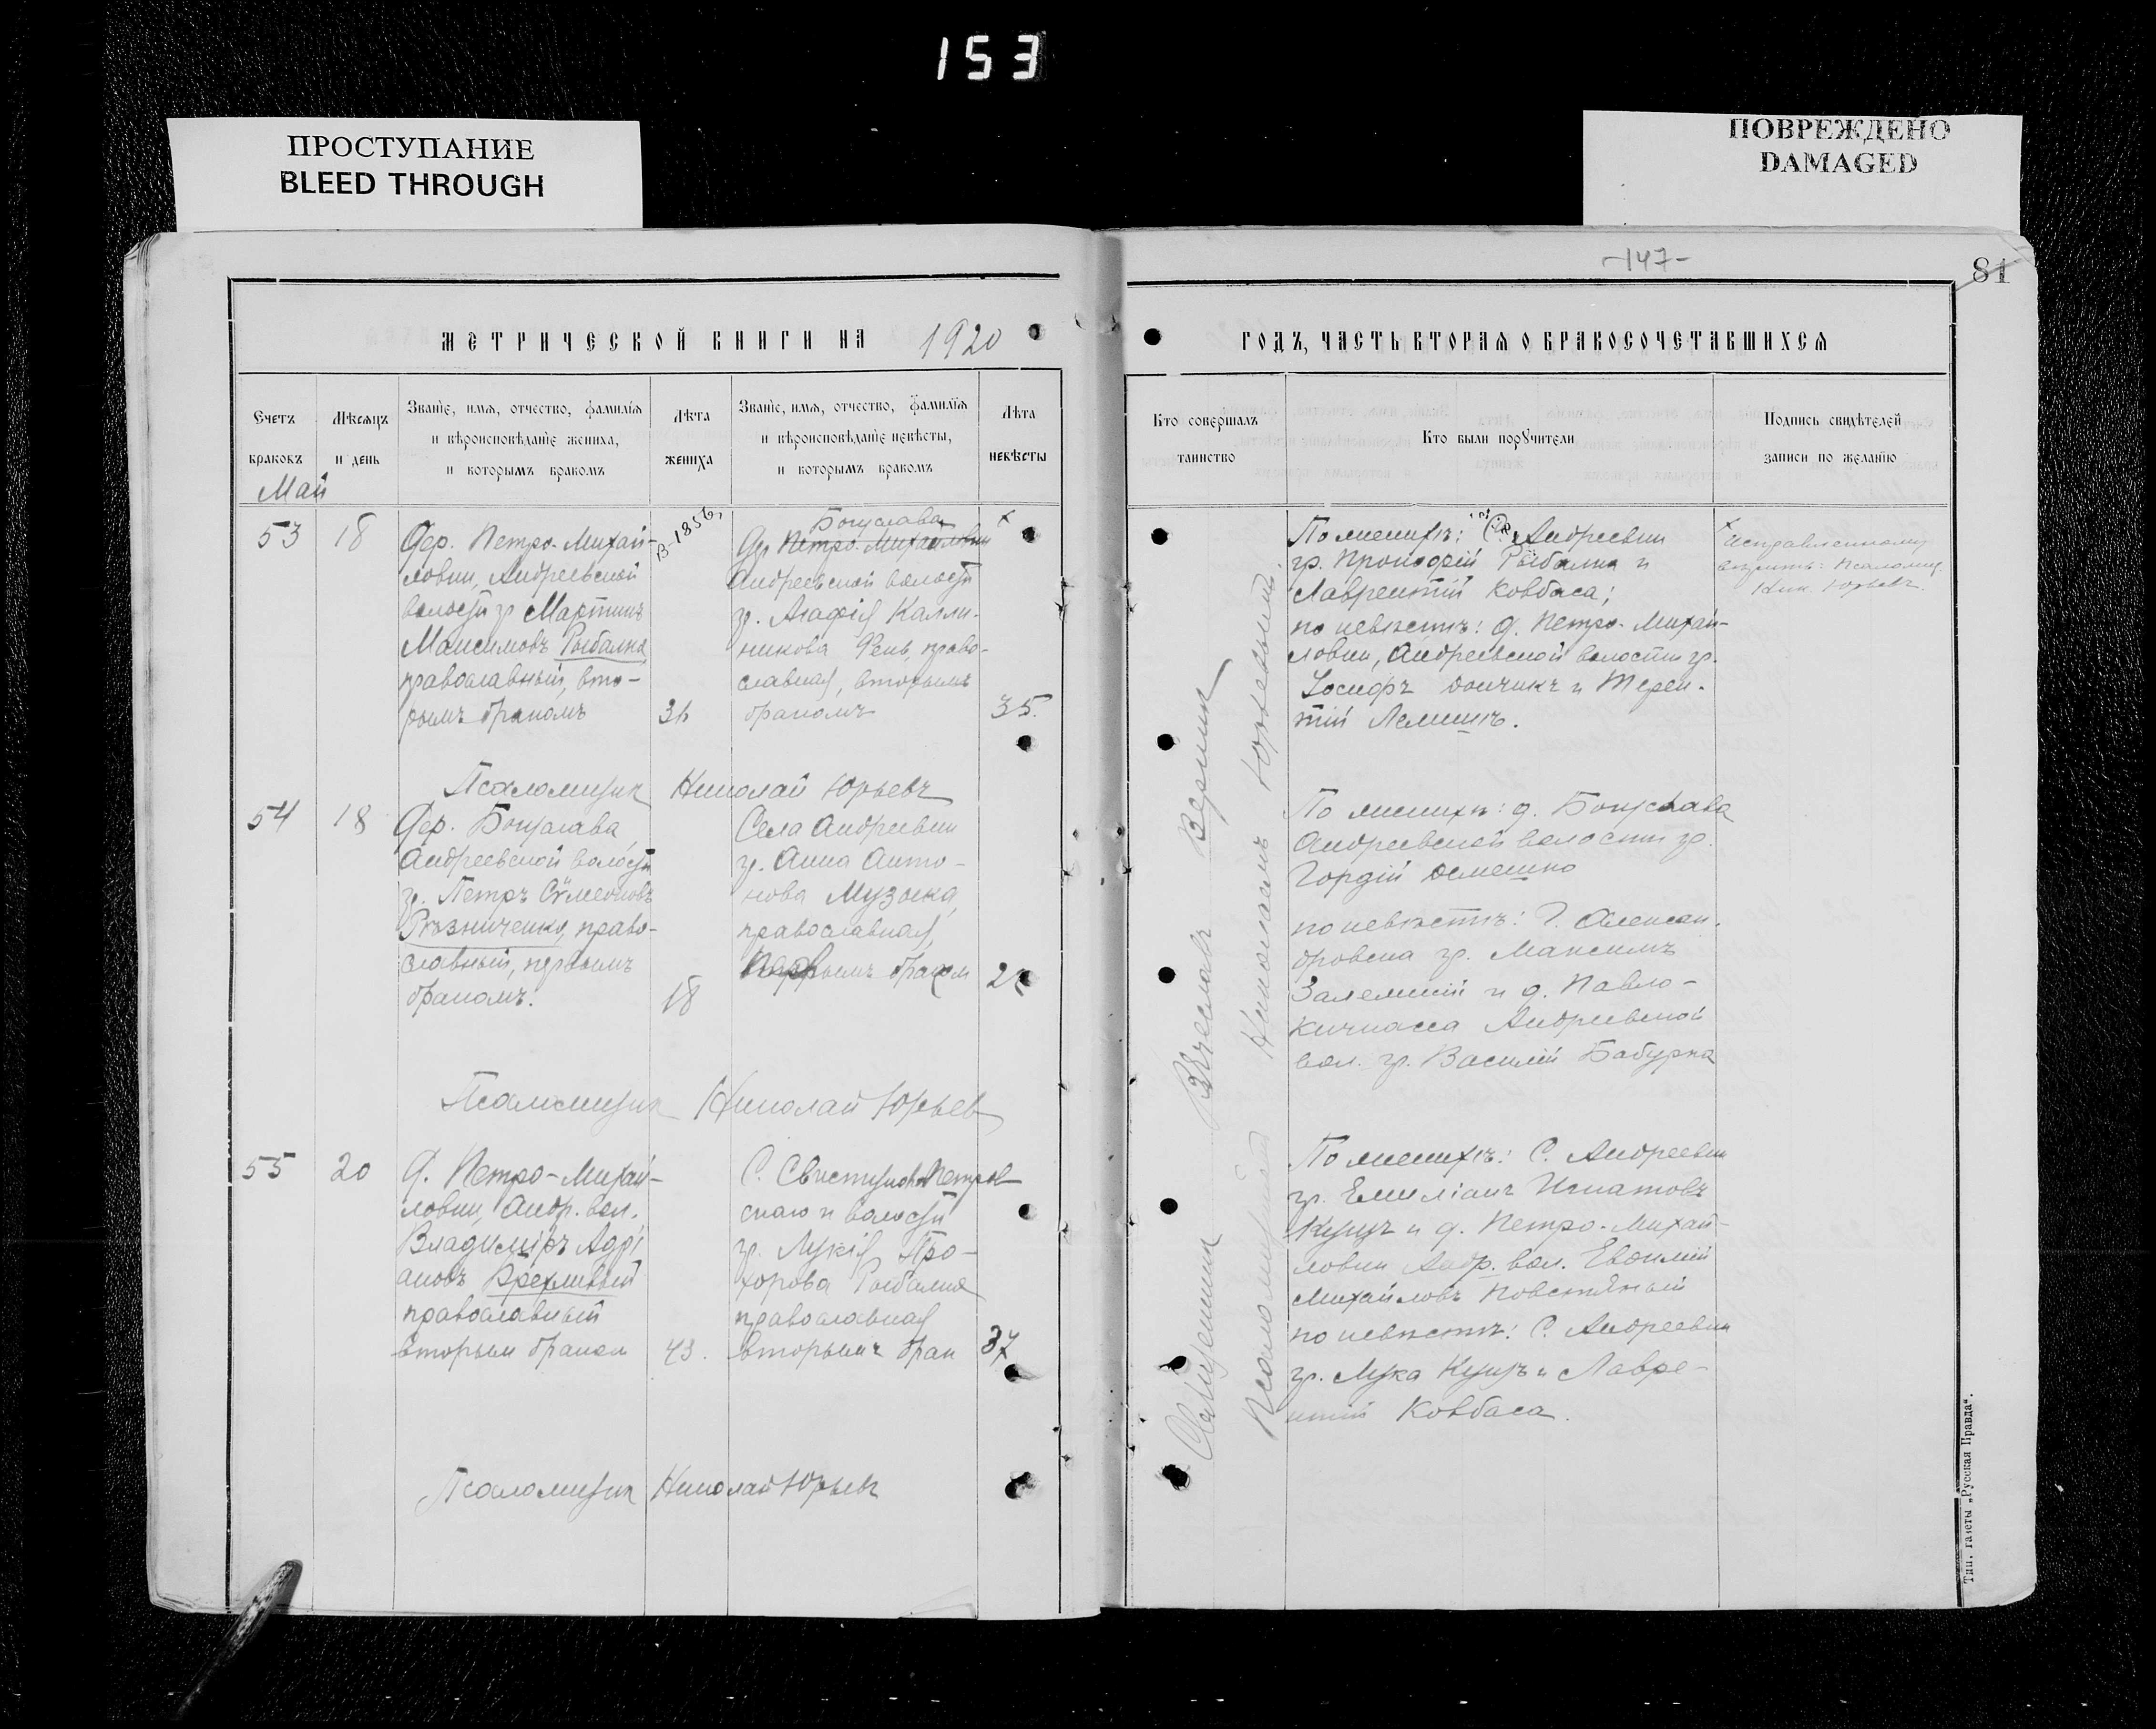 153
ПРОСТУПАНИЕ
BLEED THROUGH
ПОВРЕЖДЕНО
DAMAGED
-147-
81
МЕТРИЧЕСКОЙ КНИГИ НА 1920
ГОДЪ, ЧАСТЬ ВТОРАЯ О БРАКОСОЧЕТАВШИХСЯ
Счетъ
браковъ
Мѣсяцъ
и день
Званіе, имя, отчество, фамилія
и вѣроисповѣданіе жениха,
и которымъ бракомъ
Лѣта
жениха
Званіе, имя, отчество, фамилія
и вѣроисповѣданіе невѣсты,
и которымъ бракомъ
Лѣта
невѣсты
Кто совершалъ
таинство
Кто были поручители
Подпись свидѣтелей
записи по желанію
Май
53
18
Дер. Петро-Михай-
ловки, Андреевской
волости гр. Мартинъ
Максимовъ Рыбалка,
православный, вто-
рымъ бракомъ
36
Богуслава
Др. Петро-Михайловки
Андреевской волости
гр. Агафія Калли-
никова Фень, право-
славная, вторымъ
бракомъ
35.
По женихѣ: С. Андреевки
гр. Прокофій Рыбалка и
Лаврентій Ковбаса;
по невѣстѣ: д. Петро-Михай-
ловки, Андреевской волости гр.
Іосифъ Дончикъ и Терен-
тій Лемишъ.
× Исправленному
вѣрить: Псаломщ.
Ник. Юрьевъ.
Псаломщик Николай Юрьевъ
54
18
Дер. Богуслава,
Андреевской волости
гр. Петръ Сѵмеоновъ
Рѣзниченко, право-
славный, первымъ
бракомъ.
18
Села Андреевки
гр. Анна Анто-
нова Музыка,
православная,
Первымъ браком
По женихѣ: д. Богуслава
Андреевской волости гр.
Гордій Демешко
по невѣстѣ: Г. Алексан-
дровска гр. Максимъ
и д. Павло-
Кичкасса Андреевской
вол. гр. Василій Бабурка
Псаломщик Николай Юрьев
55
20
Д. Петро-Михай-
ловки, Андр. вол.
Владиміръ Адрі
ановъ Брехливый
православный
вторым браком
43.
С. Свистунова Петров
ской волости
гр. Лукія Про-
хорова Рыбалка
православная
вторымъ брак
37
По женихѣ: С. Андреевки
гр. Емиліанъ Игнатовъ
Куцъ и д. Петро-Михай-
ловки Андр. вол. Евфимій
Михайловъ
по невѣстѣ: С. Андреевки
гр. Лука Куцъ и Лавре-
нтій Ковбаса.
Псаломщик Николай Юрьевъ
Священник Вячеславъ
Псаломщикъ Николай Юрьевъ
Тип. газеты „Русская Правда“.